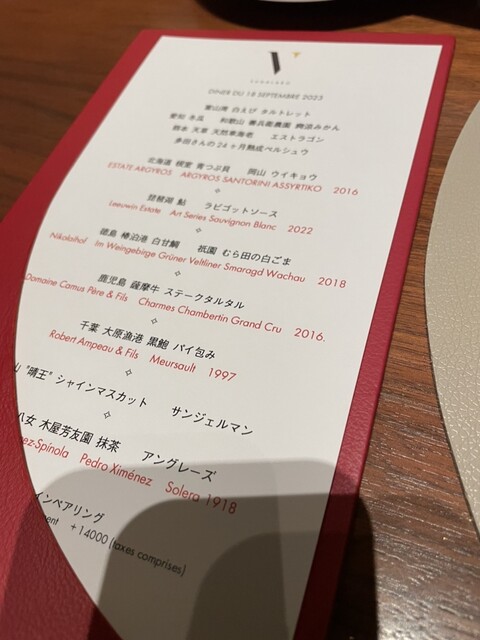 V
DINER DU 18 SEPTEMBRE 2023
富山湾 白えび タルトレット
愛知 冬瓜 和歌山 善兵衛農園 摘みかん
熊本 天草 天然車海老 エストラゴン
多田さんの24ヶ月熟成ペルシュウ
北海道 根室 青つぶ貝 岡山 ウイキョウ
ESTATE ARGYROS ARGYROS SANTORINI ASSYRTIKO 2016
琵琶湖 鮎 ラビゴットソース
Leeuwin Estate Art Series Sauvignon Blanc 2022
徳島 椿泊港 白甘鯛 祇園 むら田の白ごま
Nikolaihof Im Weingebirge Grüner Veltliner Smaragd Wachau 2018
鹿児島 薩摩牛 ステークタルタル
Domaine Camus Père & Fils Charmes Chambertin Grand Cru 2016.
千葉 大原漁港 黒鮑 パイ包み
Robert Ampeau & Fils Meursault 1997
"晴王" シャインマスカット サンジェルマン
八女 木屋芳友園 抹茶 アングレーズ
ez-Spínola Pedro Ximénez Solera 1918
インペアリング
ent +14000 (taxes comprises)